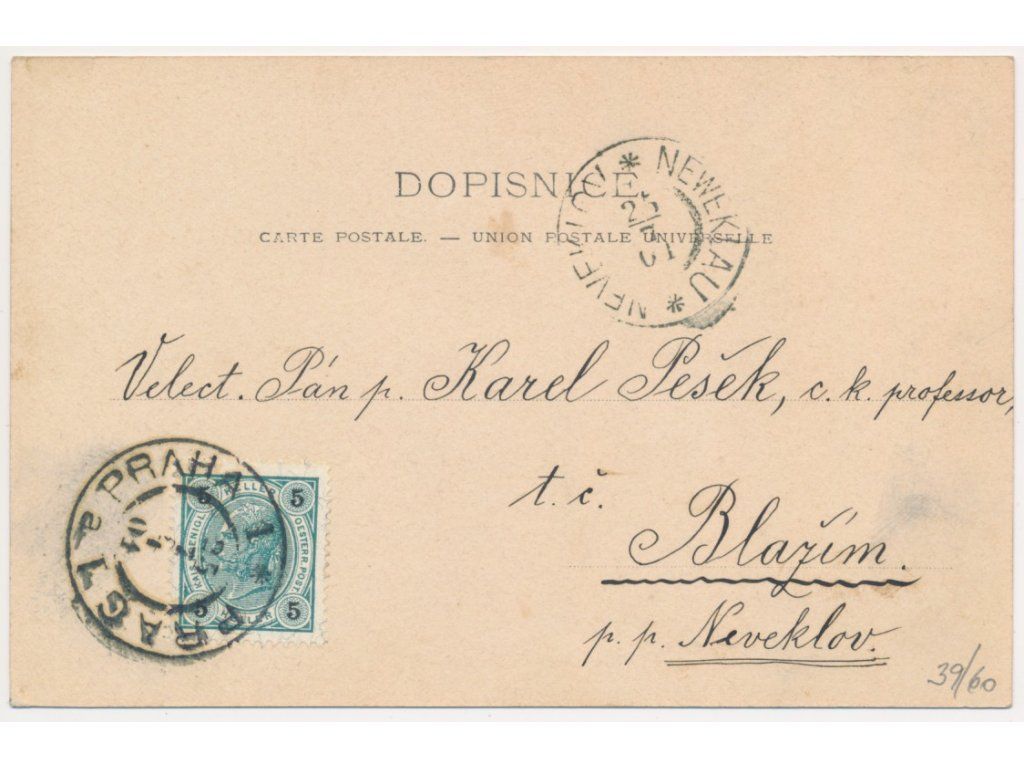 DOPISNICE.
CARTE POSTALE. — UNION POSTALE UNIVERSELLE
* NEWEKLAU * NEVEKLOV
Velect. Pán p. Karel Pešek, c. k. professor,
t. č.
Blažím.
p. p. Neveklov.
PRAHA 1 * PRAG 1 a
5 HELLER 5
KAIS. KOENIGL. OESTERR. POST.
5 HELLER 5
39/60